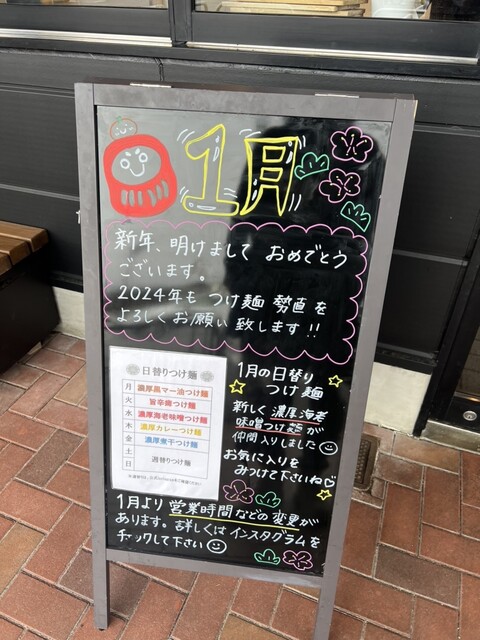 1月
新年、明けまして おめでとう
ございます。
2024年も つけ麺 勢直を
よろしくお願い致します!!
日替りつけ麺
月 濃厚黒マー油つけ麺
火 旨辛痺つけ麺
水 濃厚海老味噌つけ麺
木 濃厚カレーつけ麺
金 濃厚煮干つけ麺
土
日
週替りつけ麺
1月の日替り
つけ麺
新しく 濃厚海老
味噌つけ麺が
仲間入りしました
お気に入りを
みつけて下さいね
1月より営業時間などの変更が
あります。詳しくはインスタグラムを
チェックして下さい